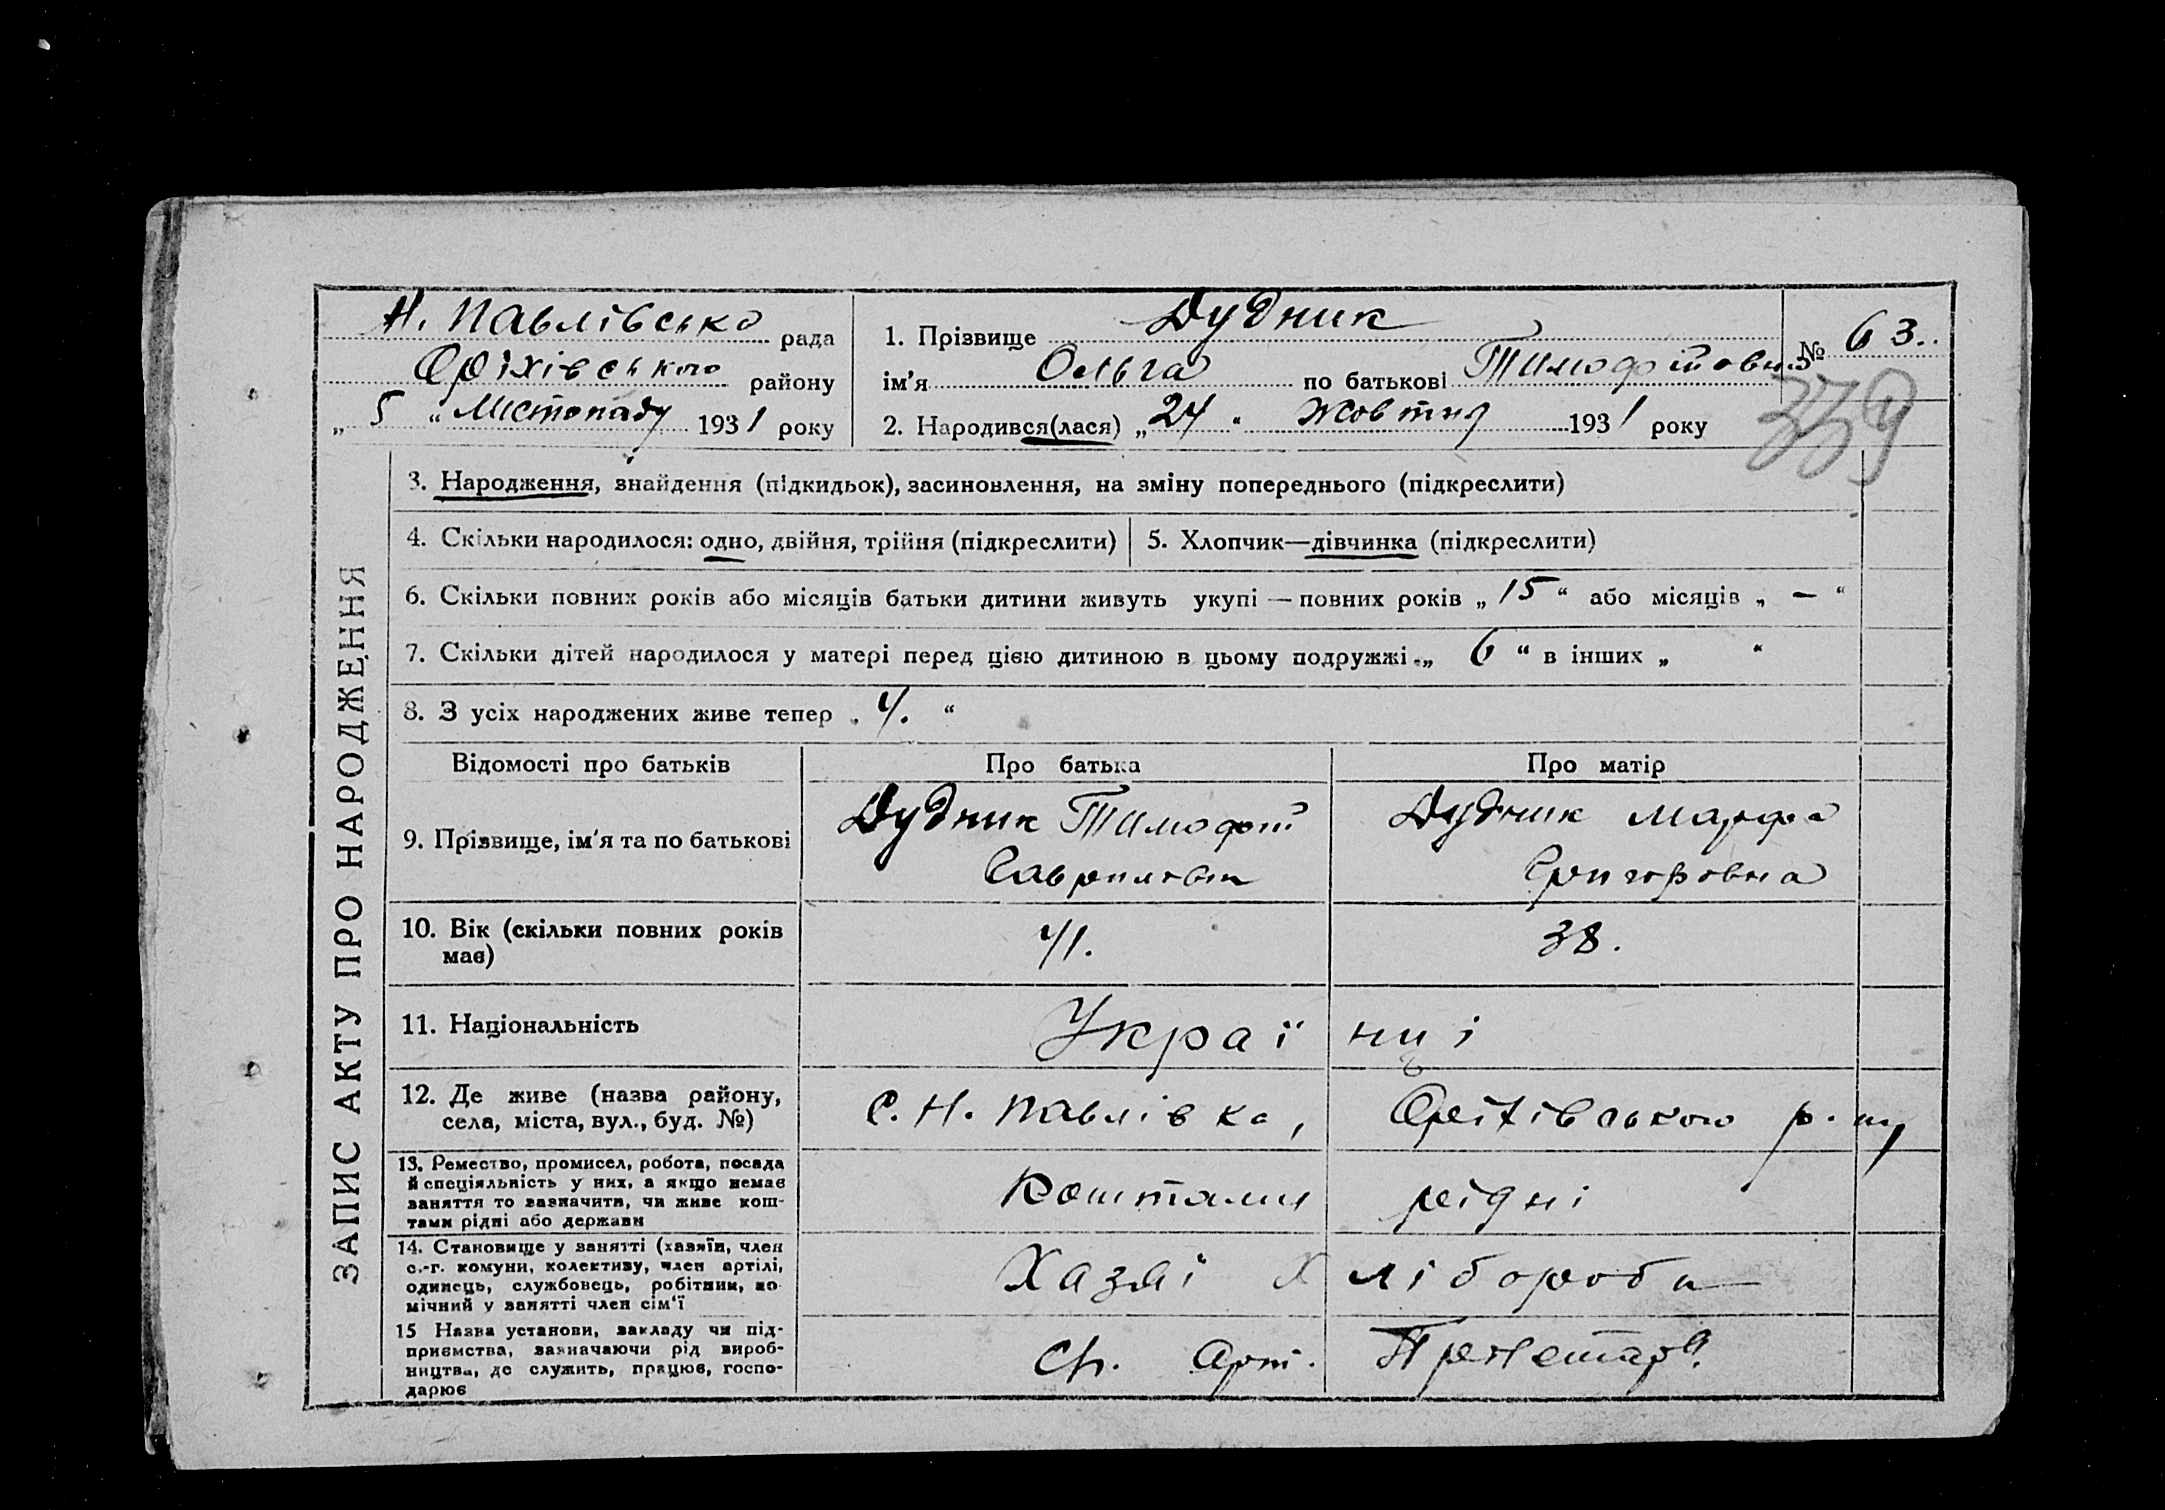 Н. Павлівська рада
Оріхівського району
„ 5 “ Листопаду 1931 року
1. Прізвище Дудник
ім'я Ольга по батькові Тимофійовна
2. Народився(лася) „ 24 “ Жовтня 1931 року
№ 63.
339
ЗАПИС АКТУ ПРО НАРОДЖЕННЯ
3. Народження, знайдення (підкидьок), засиновлення, на зміну попереднього (підкреслити)
4. Скільки народилося: одно, двійня, трійня (підкреслити)
5. Хлопчик—дівчинка (підкреслити)
6. Скільки повних років або місяців батьки дитини живуть укупі — повних років „ 15 “ або місяців „ — “
7. Скільки дітей народилося у матері перед цією дитиною в цьому подружжі „ 6 “ в інших „ “
8. З усіх народжених живе тепер „ 4. “
Відомості про батьків
Про батька
Про матір
9. Прізвище, ім'я та по батькові
Дудник Тимофій
Гаврилович
Дудник Марфа
Григоровна
10. Вік (скільки повних років
має)
41.
38.
11. Національність
Українці
12. Де живе (назва району,
села, міста, вул., буд. №)
С. Н. Павлівка, Оріхівського р-ну
13. Ремество, промисел, робота, посада
й спеціяльність у них, а якщо немає
заняття то зазначити, чи живе кош-
тами рідні або держави
Коштами рідні
14. Становище у занятті (хазяїн, член
с.-г. комуни, колективу, член артілі,
одинець, службовець, робітник, по-
мічний у занятті член сім'ї
Хазяї Хлібороби
15 Назва установи, закладу чи під-
приємства, зазначаючи рід вироб-
ництва, де служить, працює, госпо-
дарює
Арт. Пролетарь.